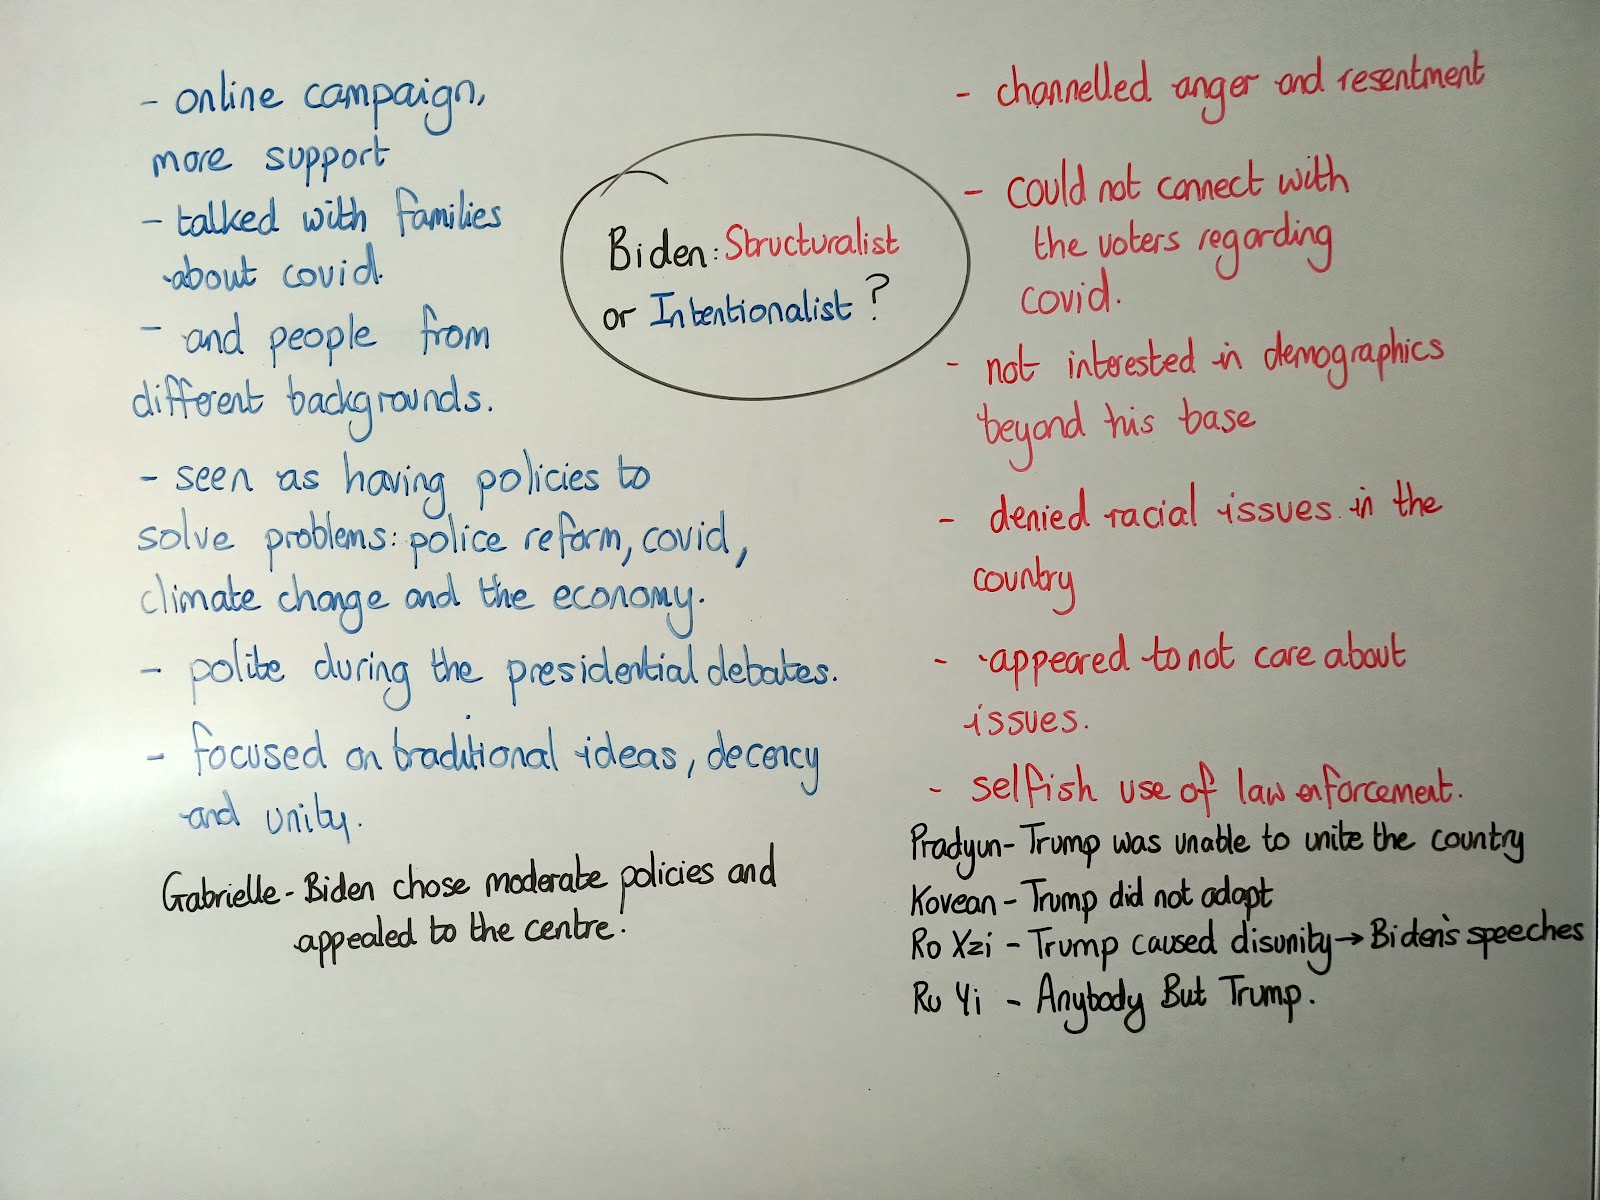 - online campaign,
more support
- talked with families
about covid.
- and people from
different backgrounds.
- seen as having policies to
solve problems: police reform, covid,
climate change and the economy.
- polite during the presidential debates.
- focused on traditional ideas, decency
and unity.
Gabrielle - Biden chose moderate policies and
appealed to the centre.
Biden: Structuralist
or Intentionalist?
- channelled anger and resentment
- could not connect with
the voters regarding
covid.
- not interested in demographics
beyond his base
- denied racial issues in the
country
- appeared to not care about
issues.
- selfish use of law enforcement.
Pradyun - Trump was unable to unite the country
Kovean - Trump did not adapt
Ro Xzi - Trump caused disunity → Biden's speeches
Ru Yi - Anybody But Trump.